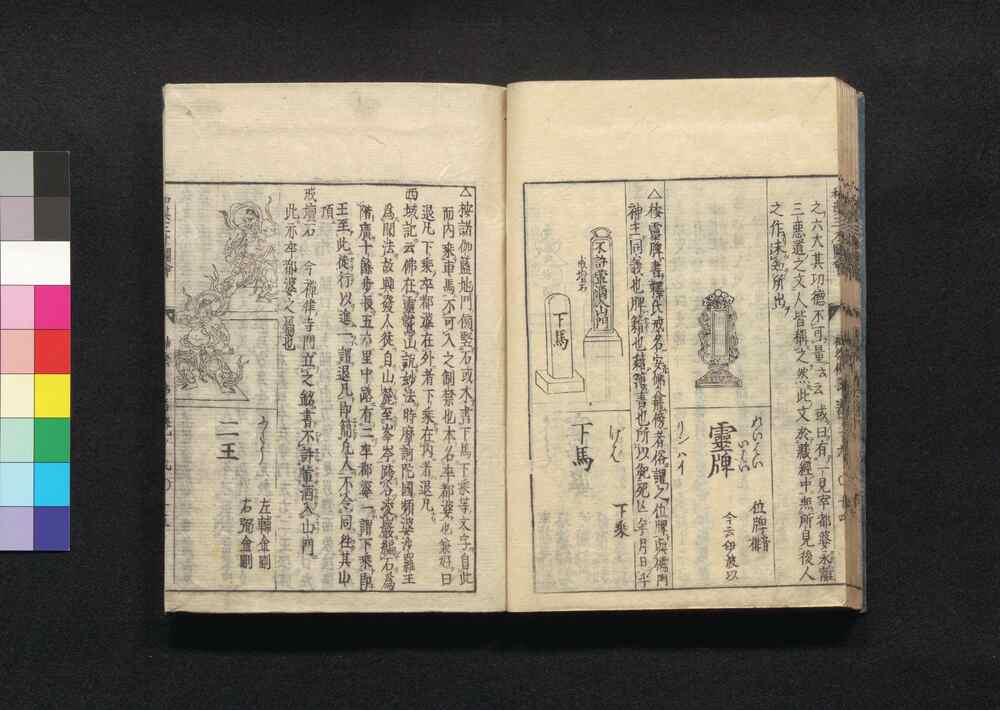 之六大其功德不可量云云或曰有一見卒都婆永離
三悪道之文人皆稱之然此文於蔵經中無所見後人
之作未知所出
れいはい
いはい
靈牌
リンハイ
位牌
今云伊波以
△按靈牌書釋氏戒名安佛龕傍者俗謂之位牌與儒門
神主同義也牌籍也
書也所以
死亡年月日
不許葷酒入山門
戒壇石
下馬
げば
下馬
下乗
△按諸伽藍地門側竪石或木書下馬下乗等文字自此
而内乗車馬不可入之制禁也木名卒都婆也兼好曰
退凡下乗卒都婆在外者下乗在内者退凡
西域記云佛在靈鷲山説妙法時摩訶陀國頻婆娑羅王
爲聞法故興發人徒自山麓至峯岑跨谷凌巖編石爲
階廣十餘歩長五六里中路有二卒都婆一謂下乗即
王至此徒行以進一謂退凡即簡凡人不令同往其山
頂
戒壇石 今禪律寺門立之銘書不許葷酒入山門
此亦卒都婆之屬也
二王
左輔金剛
右弼金剛